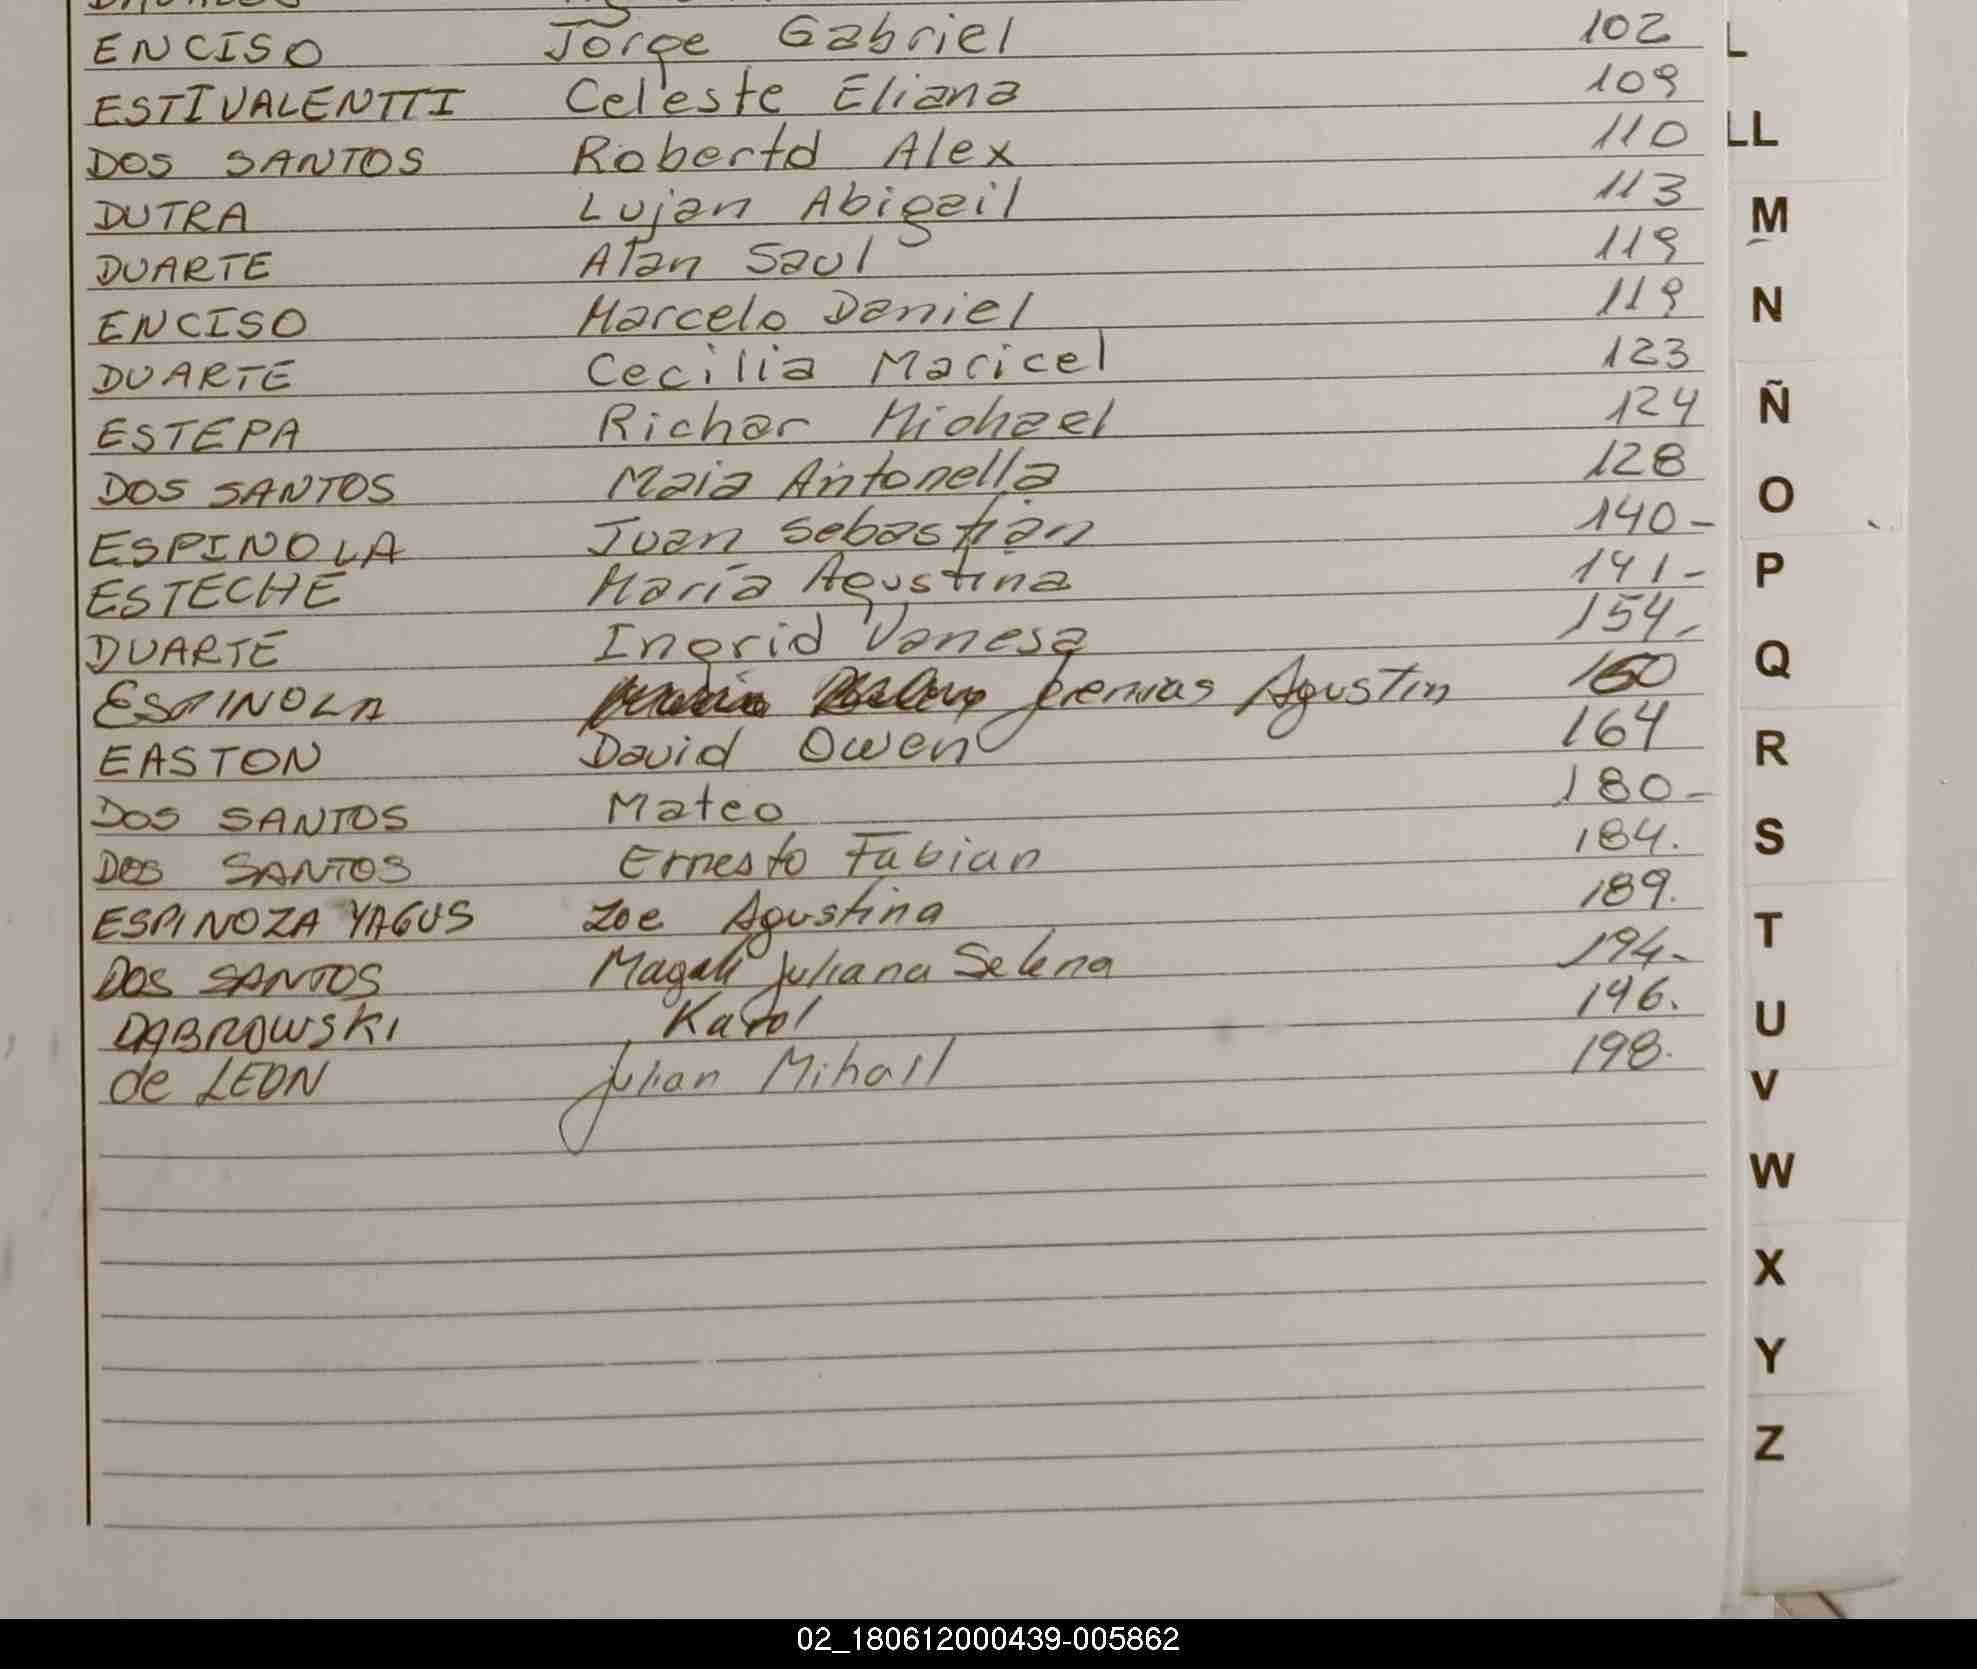 ENCISO Jorge Gabriel 102
ESTIVALENTTI Celeste Eliana 109
DOS SANTOS Roberto Alex 110
DUTRA Lujan Abigail 113
DUARTE Alan Saul 119
ENCISO Marcelo Daniel 119
DUARTE Cecilia Maricel 123
ESTEPA Richar Michael 124
DOS SANTOS Maia Antonella 128
ESPINOLA Juan Sebastián 140-
ESTECHE María Agustina 141-
DUARTE Ingrid Vanesa 154-
ESPINOLA Jeremias Agustin 160
EASTON David Owen 164
DOS SANTOS Mateo 180-
DOS SANTOS Ernesto Fabian 184.
ESPINOZA YAGUS Zoe Agustina 189.
DOS SANTOS Magali Juliana Selena 194-
DABROWSKI Karol 196.
de LEON Julian Mihail 198.
L
LL
M
N
Ñ
O
P
Q
R
S
T
U
V
W
X
Y
Z
02_180612000439-005862